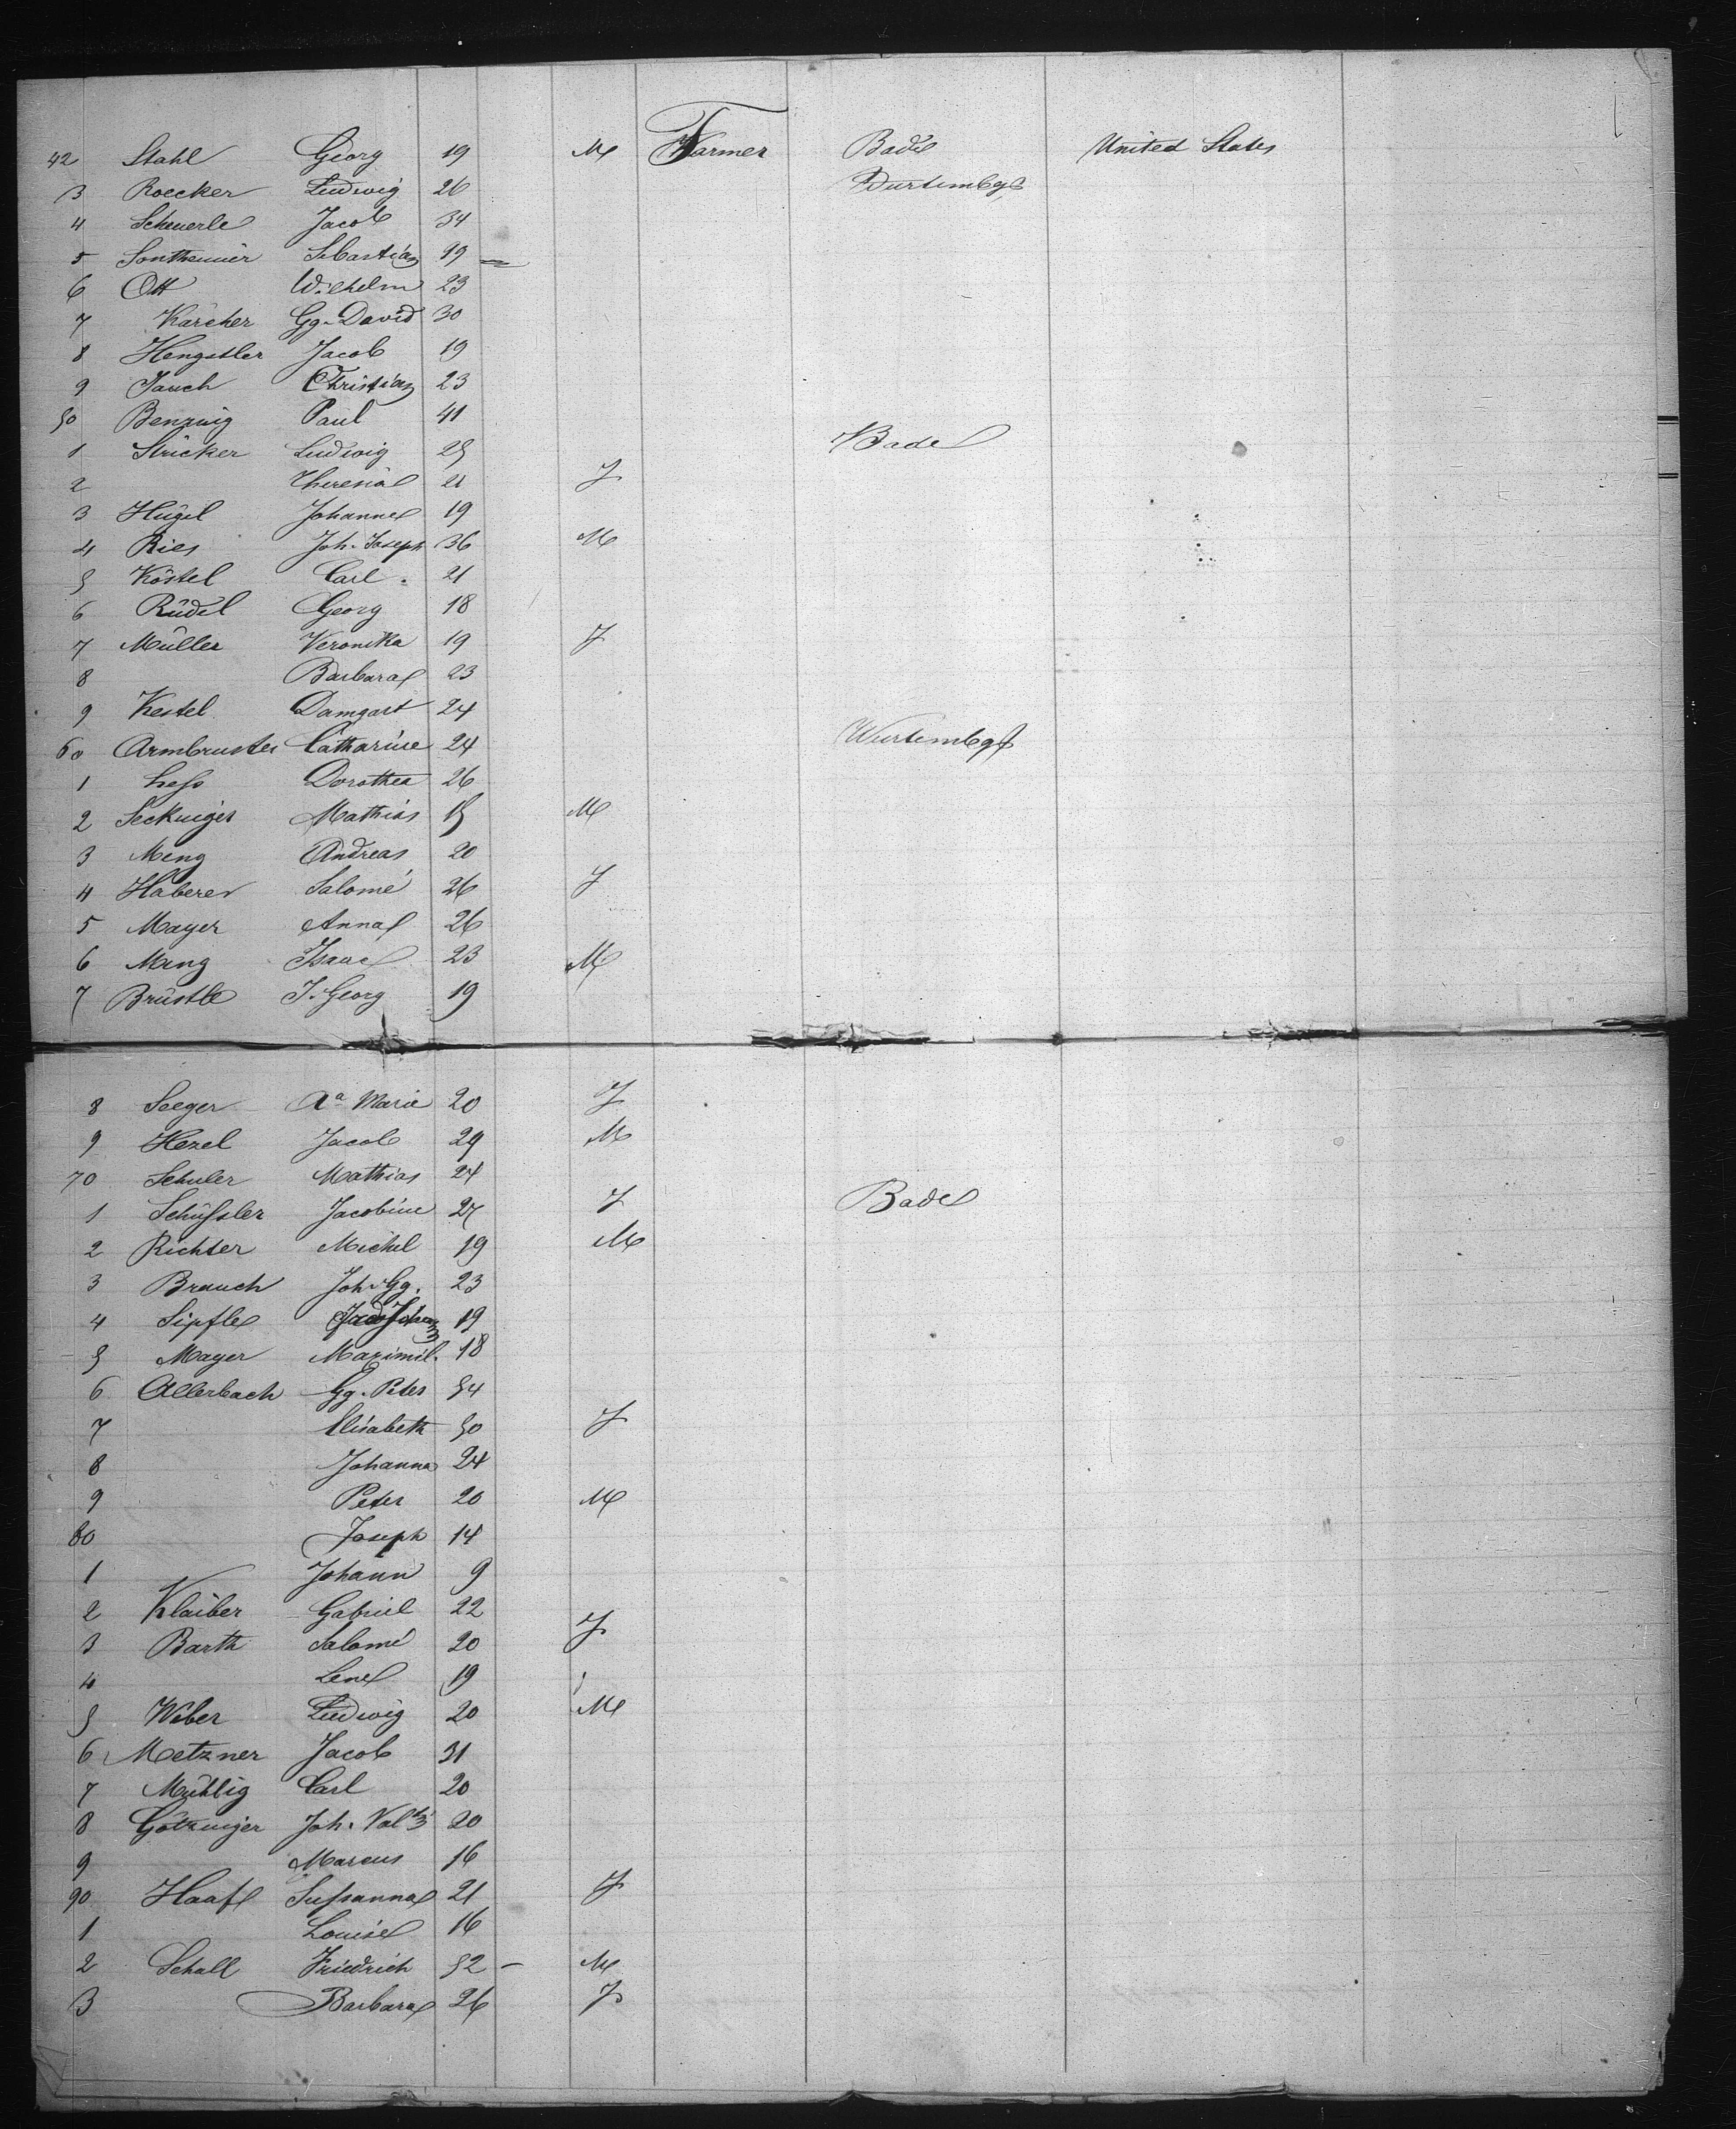 42 Stahl Georg 19 M Farmer Bade United States
3 Roecker Ludwig 26 Wurtembg
4 Scheuerle Jacob 34
5 Sontheimer Sebastian 19
6 Ott Wilhelm 23
7 Karcher Gg. David 30
8 Hengstler Jacob 19
9 Jauch Christian 23
50 Benzing Paul 41
1 Stricker Ludwig 25 Bade
2 Theresia 21 F
3 Hügel Johanne 19
4 Ries Joh. Joseph 36 M
5 Köstel Carl 21
6 Rüdel Georg 18
7 Müller Veronika 19 F
8 Barbara 23
9 Kestel 24
60 Armbruster Catharine 24 Wurtembg
1 Hess Dorothea 26
2 Seckinger Mathias 15 M
3 Meng Andreas 20
4 Haberer Salomé 26 F
5 Mayer Anna 26
6 Meng Isaac 23 M
7 Brüstle J. Georg 19
8 Seeger Aª Marie 20 F
9 Hezel Jacob 29 M
70 Schuler Mathias 24
1 Schüssler Jacobine 27 F Bade
2 Richter Michel 19 M
3 Brauch Joh. Gg. 23
4 Sipfle Johann 19
5 Mayer Maximil. 18
6 Allerbach Gg. Peter 54
7 Elisabeth 50 F
8 Johanna 24
9 Peter 20 M
80 Joseph 14
1 Johann 9
2 Klaiber Gabriel 22
3 Barth Salomé 20 F
4 Lene 19
5 Weber Ludwig 20 M
6 Metzner Jacob 31
7 Mühlig Carl 20
8 Götzinger Joh. 20
9 Marcus 16
90 Haaf Sussanna 21 F
1 Louise 16
2 Schall Friedrich 52 – M
3 Barbara 26 F